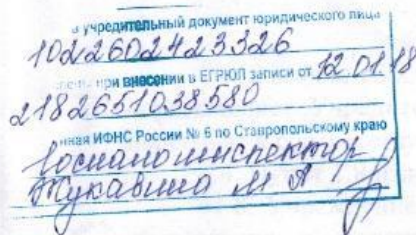 учредительный документ юридического лица
1022602423326
при внесении в ЕГРЮЛ записи от 12.01.18
2182651038580
ИФНС России № 6 по Ставропольскому краю
Госналогинспектор
Жукавина М А